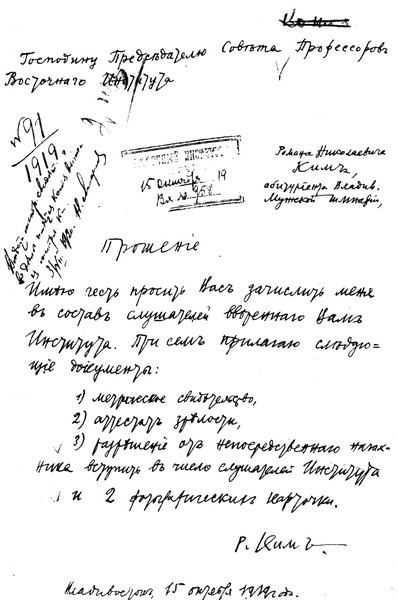 Копия
Господину Председателю Совѣта Профессоровъ
Восточнаго Института
№ 91
1919
ВОСТОЧНЫЙ ИНСТИТУТ
15 октября 19
Вх № 958
Романа Николаевича
Кимъ,
абитуріента Владив.
Мужской Гимназіи,
Прошеніе
Имѣю честь просить Васъ зачислить меня
въ составъ слушателей ввѣреннаго Вамъ
Института. При семъ прилагаю слѣдую=
щіе документы:
1) метрическое свидѣтельство,
2) аттестатъ зрѣлости,
3) разрѣшеніе отъ непосредственнаго началь-
ника вступить въ число слушателей Института
и 2 фотографическихъ карточки.
Р. Кимъ.
Владивостокъ, 15 октября 1919 годъ.